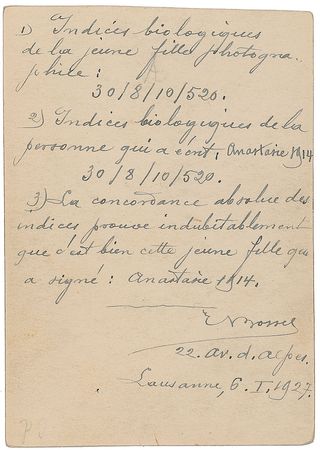 1) Indices biologiques
de la jeune fille photogra-
phiée :
30/8/10/520.
2) Indices biologiques de la
personne qui a écrit, Anastasie 1914
30/8/10/520.
3) La concordance absolue des
indices prouve indubitablement
que c'est bien cette jeune fille qui
a signé : Anastasie 1914.
22. Av. d. Alpes.
Lausanne, 6. I. 1927.